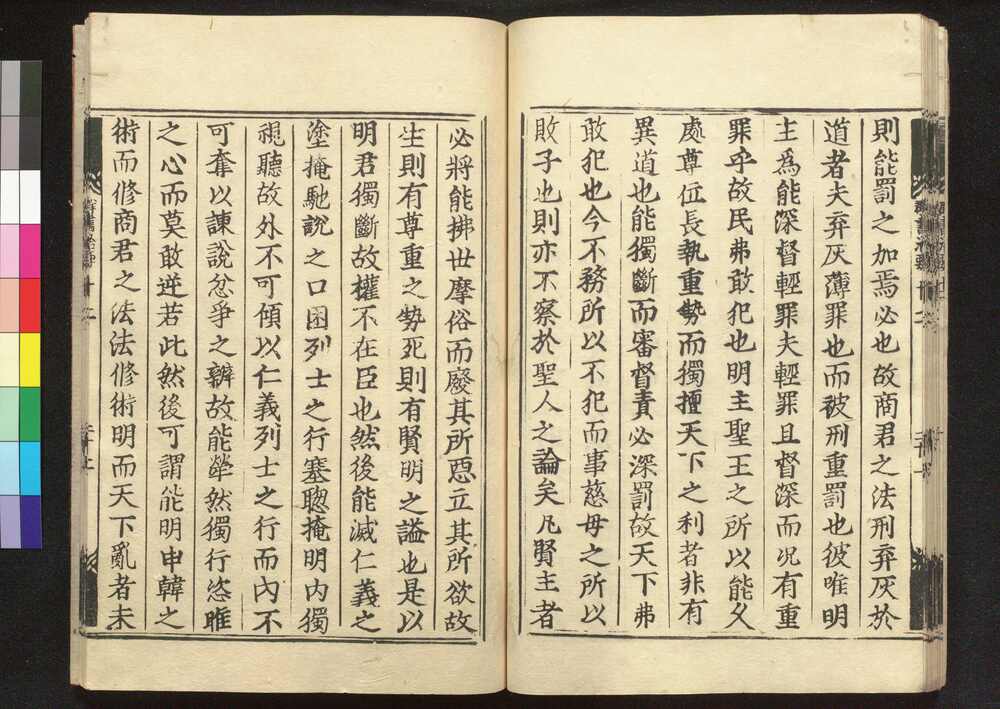 則能罰之加焉必也故商君之法刑弃灰於
道者夫弃灰薄罪也而被刑重罰也彼唯明
主為能深督輕罪夫輕罪且督深而况有重
罪乎故民弗敢犯也明主聖王之所以能久
處尊位長執重勢而獨擅天下之利者非有
異道也能獨斷而審督責必深罰故天下弗
敢犯也今不務所以不犯而事慈母之所以
敗子也則亦不察於聖人之論矣凡賢主者
必將能拂世摩俗而廢其所惡立其所欲故
生則有尊重之勢死則有賢明之謚也是以
明君獨斷故權不在臣也然後能滅仁義之
塗掩馳說之口困列士之行塞聦掩明内獨
視聽故外不可傾以仁義列士之行而内不
可奪以諫說忿爭之辨故能犖然獨行恣睢
之心而莫敢逆若此然後可謂能明申韓之
術而修商君之法法修術明而天下亂者未